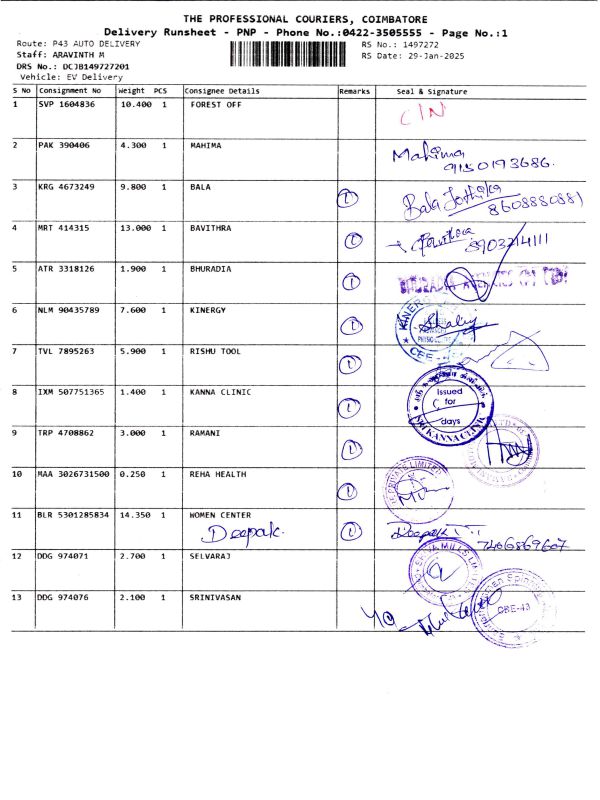 THE PROFESSIONAL COURIERS, COIMBATORE
Delivery Runsheet - PNP - Phone No.:0422-3505555 - Page No.:1
Route: P43 AUTO DELIVERY
Staff: ARAVINTH M
DRS No.: DCJB149727201
Vehicle: EV Delivery
RS No.: 1497272
RS Date: 29-Jan-2025
S No Consignment No Weight PCS Consignee Details Remarks Seal & Signature
1 SVP 1604836 10.400 1 FOREST OFF C/N
2 PAK 390406 4.300 1 MAHIMA Mahima
9150193686.
3 KRG 4673249 9.800 1 BALA 1 Bala
8608880881
4 MRT 414315 13.000 1 BAVITHRA 1 Pavithra 8903214111
5 ATR 3318126 1.900 1 BHURADIA 1 BHURADIA AGENCIES (P) LTD
6 NLM 90435789 7.600 1 KINERGY 1 KINERGY
CBE
7 TVL 7895263 5.900 1 RISHU TOOL 1
8 IXM 507751365 1.400 1 KANNA CLINIC 1 Issued
for
days
SRI KANNA CLINIC
9 TRP 4708862 3.000 1 RAMANI 1
10 MAA 3026731500 0.250 1 REHA HEALTH 1 PRIVATE LIMITED
11 BLR 5301285834 14.350 1 WOMEN CENTER 1 Deepak
Deepak. 7406869607
12 DDG 974071 2.700 1 SELVARAJ MILLS
13 DDG 974076 2.100 1 SRINIVASAN CBE-43